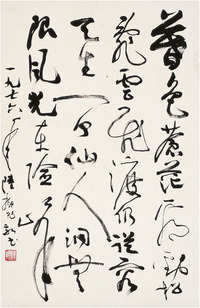 暮色苍茫看劲松
乱云飞渡仍从容
天生一个仙人洞无
限风光在险峰
一九七六年 陆俨少书